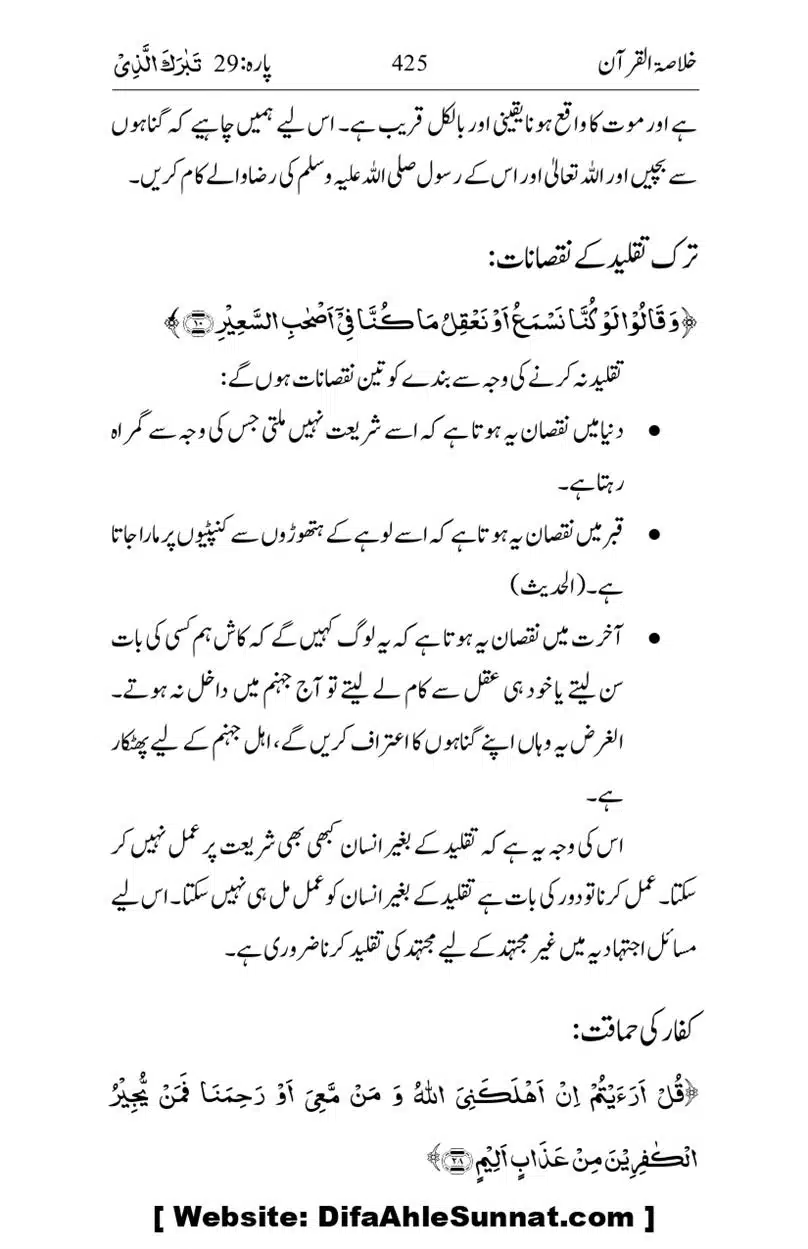 خلاصۃ القرآن 425 پارہ:29 تَبٰرَكَ الَّذِیْ
ہے اور موت کا واقع ہونا یقینی اور بالکل قریب ہے۔ اس لیے ہمیں چاہیے کہ گناہوں
سے بچیں اور اللہ تعالیٰ اور اس کے رسول صلی اللہ علیہ وسلم کی رضا والے کام کریں۔
ترک تقلید کے نقصانات:
﴿وَ قَالُوْا لَوْ كُنَّا نَسْمَعُ اَوْ نَعْقِلُ مَا كُنَّا فِیْۤ اَصْحٰبِ السَّعِیْرِ ﴿۱۰﴾﴾
تقلید نہ کرنے کی وجہ سے بندے کو تین نقصانات ہوں گے:
● دنیا میں نقصان یہ ہوتا ہے کہ اسے شریعت نہیں ملتی جس کی وجہ سے گمراہ
رہتا ہے۔
● قبر میں نقصان یہ ہوتا ہے کہ اسے لوہے کے ہتھوڑوں سے کنپٹیوں پر مارا جاتا
ہے۔ (الحدیث)
● آخرت میں نقصان یہ ہوتا ہے کہ یہ لوگ کہیں گے کہ کاش ہم کسی کی بات
سن لیتے یا خود ہی عقل سے کام لے لیتے تو آج جہنم میں داخل نہ ہوتے۔
الغرض یہ وہاں اپنے گناہوں کا اعتراف کریں گے، اہل جہنم کے لیے پھٹکار
ہے۔
اس کی وجہ یہ ہے کہ تقلید کے بغیر انسان کبھی بھی شریعت پر عمل نہیں کر
سکتا۔ عمل کرنا تو دور کی بات ہے تقلید کے بغیر انسان کو عمل مل ہی نہیں سکتا۔ اس لیے
مسائل اجتہادیہ میں غیر مجتہد کے لیے مجتہد کی تقلید کرنا ضروری ہے۔
کفار کی حماقت:
﴿قُلْ اَرَءَیْتُمْ اِنْ اَهْلَكَنِیَ اللّٰهُ وَ مَنْ مَّعِیَ اَوْ رَحِمَنَا فَمَنْ یُّجِیْرُ
الْكٰفِرِیْنَ مِنْ عَذَابٍ اَلِیْمٍ ﴿۲۸﴾﴾
[ Website: DifaAhleSunnat.com ]